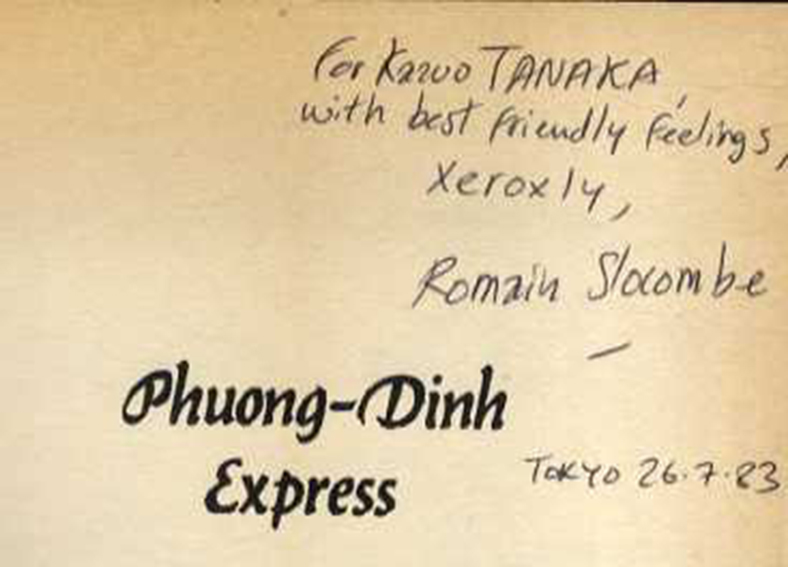 For Kazuo TANAKA,
with best friendly feelings,
Xeroxly,
Romain Slocombe
Phuong-Dinh
Express
TOKYO 26.7.83